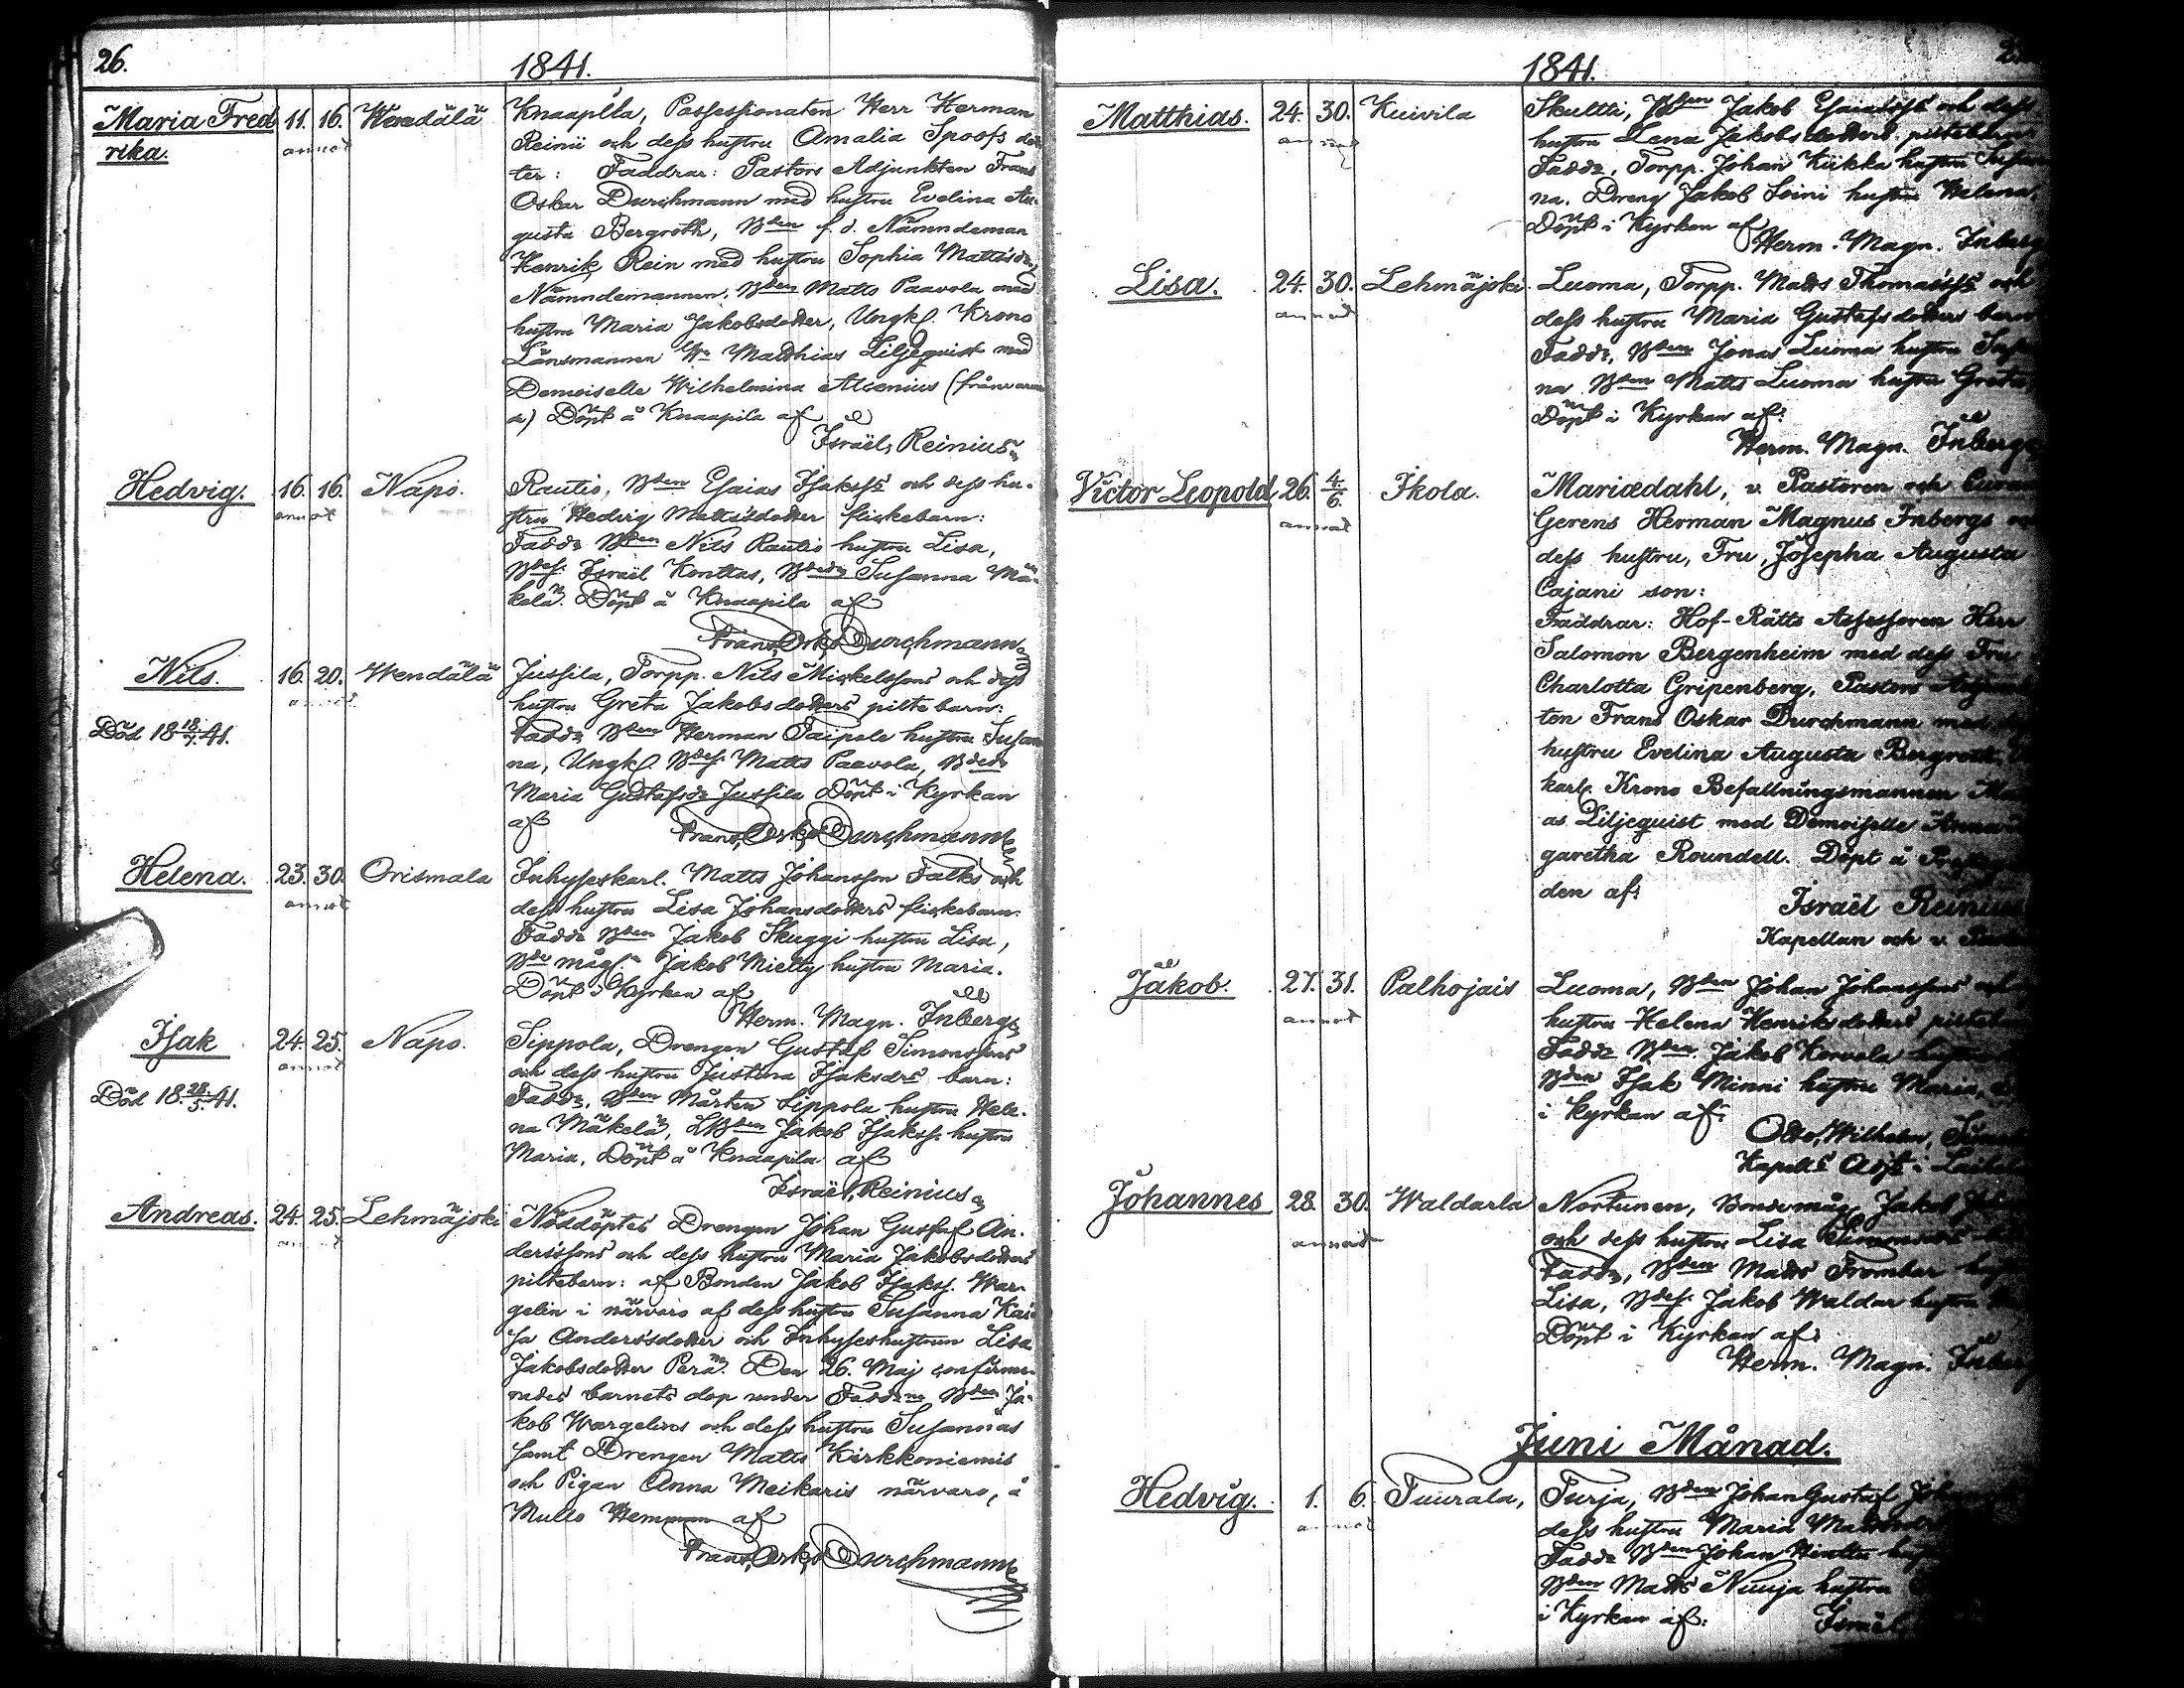 26.
1841.
Maria Fred 11. 16. Wendälä Knaapila, Possessionaten Herr Herman
rika. annot Reinii och dess hustru Amalia Spoofs dot
ter: Faddrar: Pastors Adjunkten Frans
Oskar Durchmann med hustru Evelina Au-
gusta Bergroth, Bden f. d. Nämndeman
Henrik Rein med hustru Sophia Mattsdr,
Nämndemannen, Bden Matts Paavola med
hustru Maria Jakobsdotter, Ungk. Krono
Länsmannen Hr Matthias Liljequist med
Demoiselle Wilhelmina Alcenius (frånvaran
de) Döpt å Knaapila af
Israël Reinius
Hedvig. 16. 16. Napo. Rautio, Bden Esaias Isakss och dess hu-
annot stru Hedvig Mattsdotter flickebarn:
Faddr Bden Nils Rautio hustru Lisa,
Bdes. Israël Konttas, Bdedr Susanna Mä-
kelä. Döpt å Knaapila af
Frans Osk. Durchmann
Nils. 16. 20. Wendälä Jussila, Torpp. Nils Mickelssons och dess
annot hustru Greta Jakobsdotters piltebarn:
Död 18 18/7 41. Faddr Bden Herman Taipale hustru Susan
na, Ungk. Bdes. Matts Paavola, Bdedr
Maria Gustafsdr Jussila Döpt i Kyrkan
af Frans Osk. Durchmann
Helena. 23. 30. Orismala Inhyseskarl. Matts Johansson Falks och
annot dess hustru Lisa Johansdotters flickebarn.
Faddr Bden Jakob Skuggi hustru Lisa,
Bde mågen Jakob Mielty hustru Maria.
Döpt i Kyrkan af
Herm. Magn. Inberg
Isak 24. 25. Napo. Sippola, Drengen Gustaf Simonssons
annot och dess hustru Justina Isaksdrs barn:
Död 18 28/5 41. Faddr, Bden Mårten Sippola hustru Hele-
na Mäkelä, LBden Jakob Isakss. hustru
Maria, Döpt å Knaapila af
Israël Reinius
Andreas. 24. 25. Lehmäjoki Nöddöptes Drengen Johan Gustaf An-
annot derssons och dess hustru Maria Jakobsdotters
piltebarn: af Bonden Jakob Isakss. War-
gelin i närvaro af dess hustru Susanna Kai
sa Andersdotter och Inhyseshustrun Lisa
Jakobsdotter Perä. Den 26. Maj confirme-
rades barnets dop under Faddrne Bden Ja-
kob Wargelins och dess hustru Susannas
samt Drengen Matts Kirkkoniemis
och Pigan Anna Meikaris närvaro, å
Mullo Hemman af
Frans Osk. Durchmann
1841.
Matthias. 24. 30. Kuivila Skultti, Bden Jakob Esaiass och dess
annot hustru Lena Jakobsdotters piltebarn
Faddr, Torpp. Johan Kukka hustru Susan
na. Dreng Jakob Soini hustru Helena,
Döpt i Kyrkan af
Herm. Magn. Inberg
Lisa. 24. 30. Lehmäjoki Luoma, Torpp. Matts Thomass och
annot dess hustru Maria Gustafsdotters barn
Faddr, Bden Jonas Luoma hustru Susan
na Bden Matts Luoma hustru Greta,
Döpt i Kyrkan af:
Herm. Magn. Inberg
Victor Leopold 26. 4/6. Ikola. Mariædahl, v. Pastoren och Curam
annot Gerens Herman Magnus Inbergs och
dess hustru, Fru Josepha Augusta
Cajani son:
Faddrar: Hof-Rätts Assessoren Herr
Salomon Bergenheim med dess Fru
Charlotta Gripenberg, Pastors Adjunk
ten Frans Oskar Durchmann med
hustru Evelina Augusta Bergroth,
karl. Krono Befallningsmannen
as Liljequist med Demoiselle Anna
garetha Roundell. Döpt å
den af:
Israël Reinius
Kapellan och v.
Jakob. 27. 31. Palhojais Luoma, Bden Johan Johanssons och
annot hustru Helena Henriksdotters
Faddr Bden Jakob Korvola hustru
Bden Isak Minni hustru Maria,
i Kyrkan af:
Otto Wilhelm
Kapells Adjt i
Johannes 28. 30. Waldarla Nortunen, Bondemåg Jakob
annot och dess hustru Lisa
Faddr, Bden Matts Frombar
Lisa, Bdes. Jakob Waldar hustru
Döpt i Kyrkan af:
Herm. Magn. Inberg
Juni Månad.
Hedvig. 1. 6. Tuurala, Turja, Bden Johan Gustaf
annot dess hustru Maria
Faddr Bden Johan
Bden Matts Nuuja hustru
i Kyrkan af: Israël